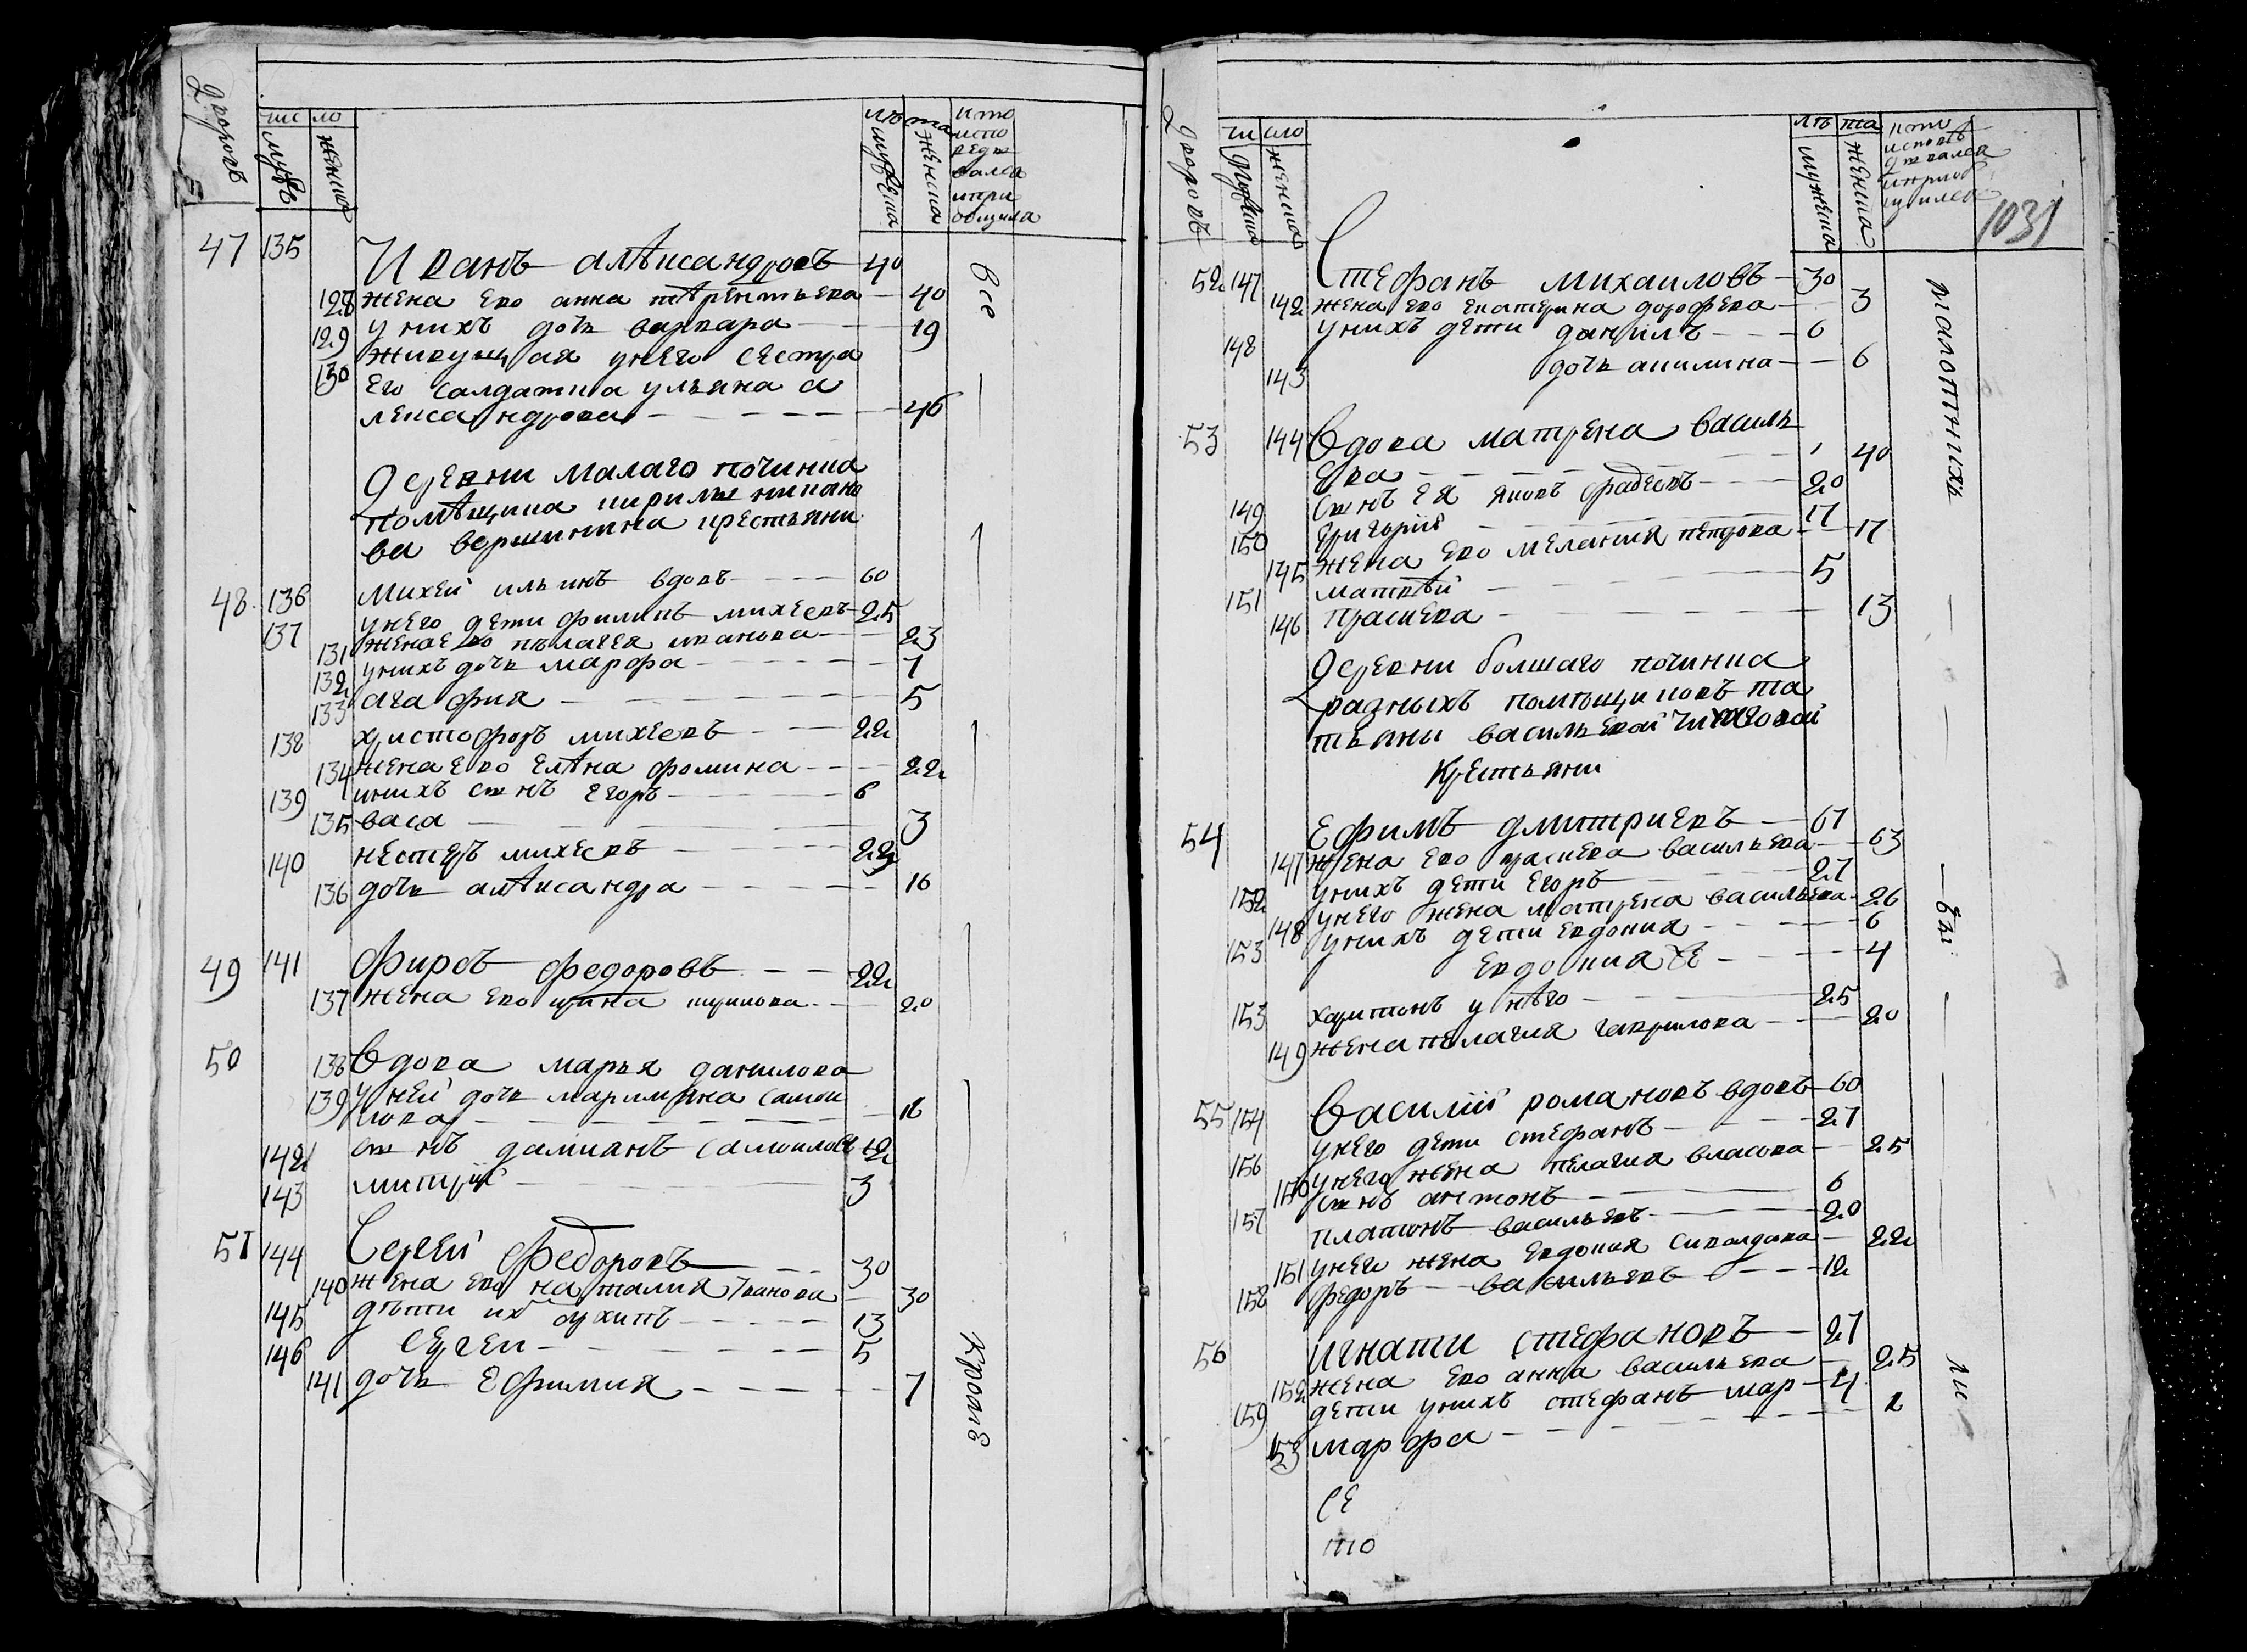 дворовъ
чис ло
мужеска
женска
лѣта
мужеска
женска
кто
испо
ведо
вался
и при
общился
47 135 Иванъ алѣксандровъ 40
128 жена ево анна тѣрентьева 40
129 у нихъ дочь варвара 19
130 живущая у него сестра
его салдатка ульяна а
лександрова 46
Деревни малаго починка
помѣщика кирилы иванова
вершинина крестьяни
48 136 Михей ильинъ вдовъ 60
137 у него дети филипъ михеевъ 25
131 жена ево пѣлагея иванова 23
132 у нихъ дочь марфа 7
133 агафия 5
138 христофоръ михеевъ 22
134 жена ево елѣна фомина 22
139 у нихъ сынъ егоръ 6
135 васа 3
140 нестеръ михеевъ 22
136 дочь алѣксандра 16
49 141 Фирсъ федоровъ 22
137 жена ево ирина 20
50 138 Вдова марья данилова
139 у ней дочь маримьяна самои
лова 16
142 сынъ дамианъ самоиловъ 12
143 митрий 3
51 144 Сергей Федоровъ 30
140 жена ево наталия Iванова 30
145 дѣти ихъ архипъ 13
146 сергеи 5
141 дочь Ефимия 7
все
кроме
дворовъ
чи сло
мужеска
женска
лѣ та
мужеска
женска
кто
исповѣ
довался
и приоб
щился
1031
52 147 Стефанъ михаиловъ 30
142 жена ево екатерина дорофева 3
148 у нихъ дети данилъ 6
143 дочь акилина 6
53 144 Вдова матрена василь
ева 40
149 сынъ ея яковъ фадеевъ 20
150 григорий 17
145 жена ево мелания петрова 17
151 матвѣй 5
146 прасковя 13
Деревни болшаго починка
разныхъ помѣщиковъ та
тьяны васильевой чижговой
крестьяни
54 Ефимъ дмитриевъ 67
147 жена ево прасковя васильева 63
152 у нихъ дети егоръ 27
148 у него жена матрена васильева 26
153 у нихъ дети евдокия 6
евдокия же 4
153 харитонъ у нѣго 25
149 жена пелагия гаврилова 20
55 154 Василий романовъ вдовъ 60
156 у него дети стефанъ 27
150 у него жена пелагия власова 25
157 сынъ антонъ 6
платонъ васильевъ 20
151 у него жена евдокия 22
158 федоръ васильевъ 12
56 игнати стефановъ 27
152 жена ево анна васильева 25
159 дети у нихъ стефанъ мар 4
153 марфа 1
се
то
малотнихъ
бы
ли